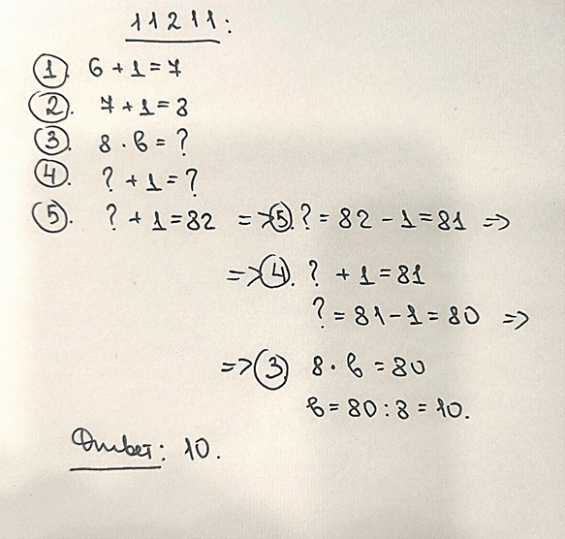 11211:
1. 6 + 1 = 7
2. 7 + 1 = 8
3. 8 · b = ?
4. ? + 1 = ?
5. ? + 1 = 82 => 5. ? = 82 - 1 = 81 =>
=> 4. ? + 1 = 81
? = 81 - 1 = 80 =>
=> 3. 8 · b = 80
b = 80 : 8 = 10.
Ответ: 10.